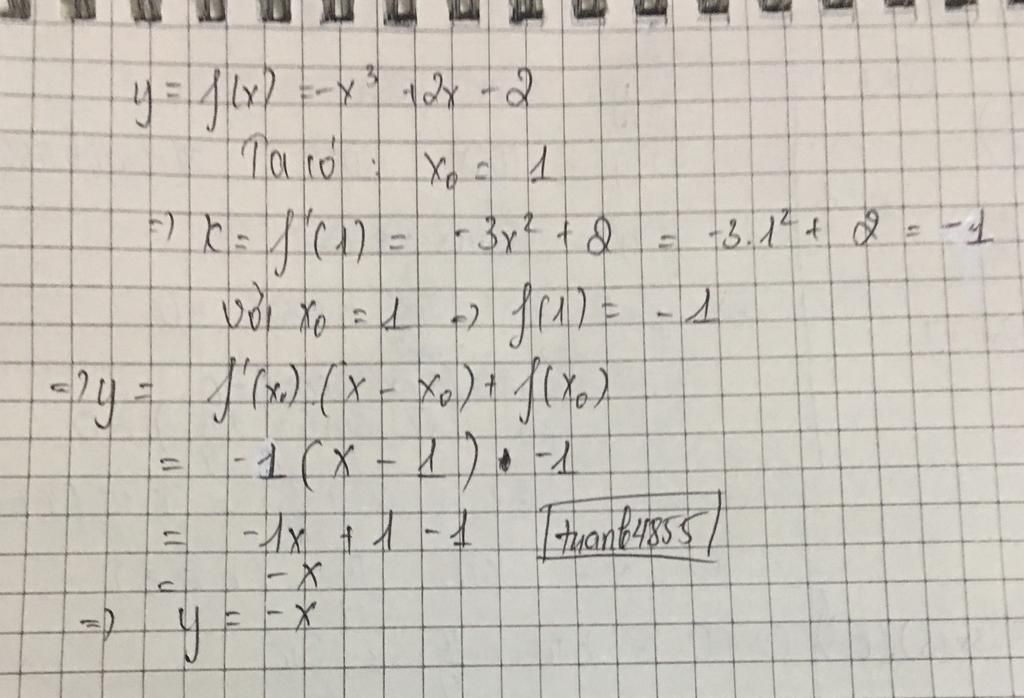 y = f(x) = -x³ + 2x - 2
Ta có : x₀ = 1
=> k = f'(1) = -3x² + 2 = -3.1² + 2 = -1
Với x₀ = 1 => f(1) = -1
=> y = f'(x₀).(x - x₀) + f(x₀)
= -1(x - 1) -1
= -1x + 1 - 1 tuanb4855
= -x
=> y = -x